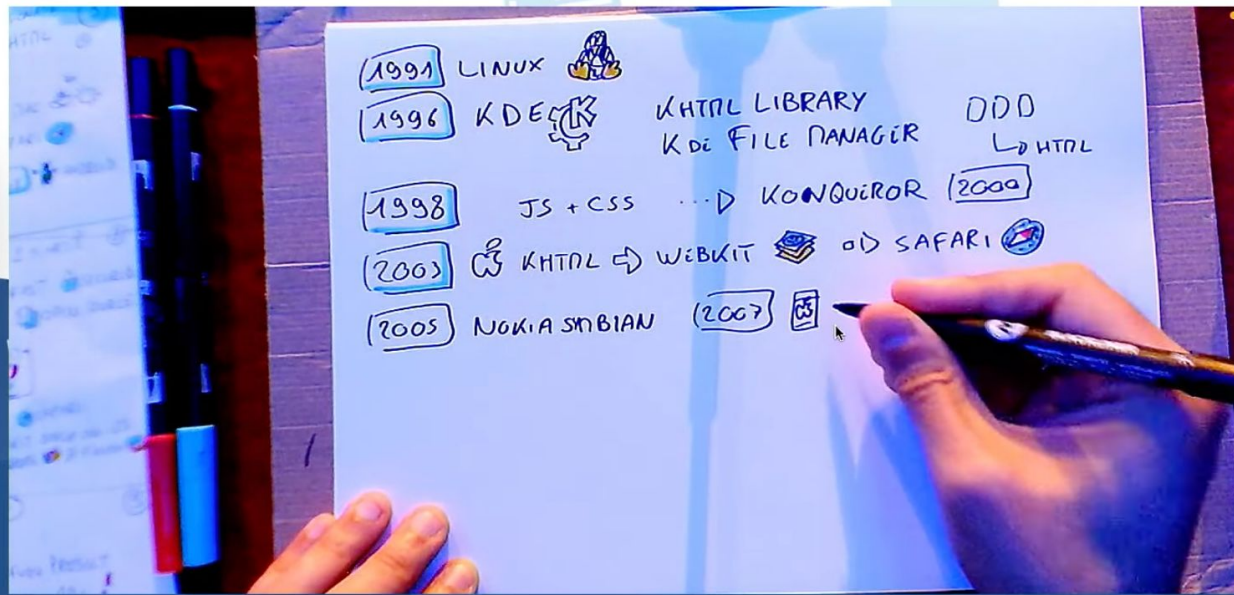 1991 LINUX
1996 KDE K KHTML LIBRARY DDD
KDE FILE MANAGER HTML
1998 JS + CSS KONQUEROR 2000
2003 KHTML WEBKIT SAFARI
2005 NOKIA SMBIAN 2007
HTML